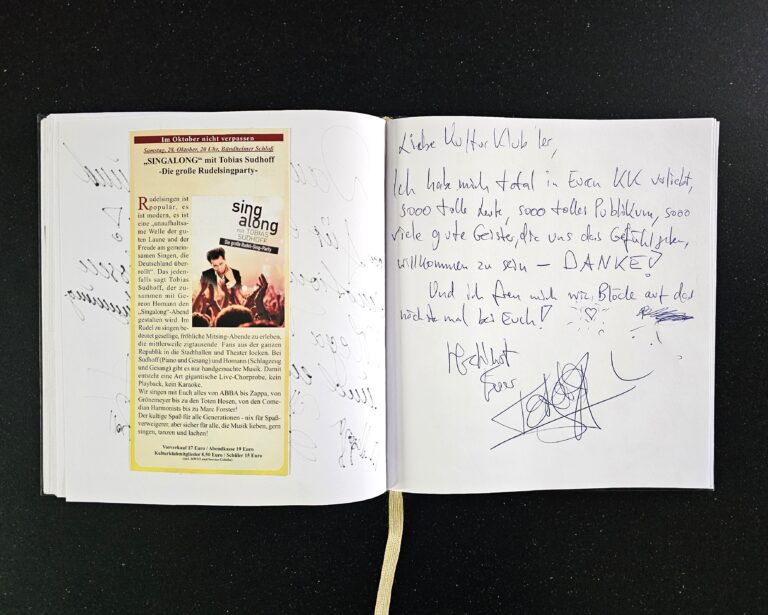 Im Oktober nicht verpassen
Samstag, 28. Oktober, 20 Uhr, Bündheimer Schloß
„SINGALONG“ mit Tobias Sudhoff
-Die große Rudelsingparty-
Rudelsingen ist
populär, es
ist modern, es ist
eine „unaufhaltsa-
me Welle der gu-
ten Laune und der
Freude am gemein-
samen Singen, die
Deutschland über-
rollt“. Das jeden-
falls sagt Tobias
Sudhoff, der zu-
sammen mit Ge-
reon Homann den
„Singalong“-Abend
gestalten wird. Im
Rudel zu singen be-
deutet gesellige, fröhliche Mitsing-Abende zu erleben,
die mittlerweile zigtausende Fans aus der ganzen
Republik in die Stadthallen und Theater locken. Bei
Sudhoff (Piano und Gesang) und Homann (Schlagzeug
und Gesang) gibt es nur handgemachte Musik. Damit
entsteht eine Art gigantische Live-Chorprobe, kein
Playback, kein Karaoke.
Wir singen mit Euch alles von ABBA bis Zappa, von
Grönemeyer bis zu den Toten Hosen, von den Come-
dian Harmonists bis zu Marc Forster!
Der kultige Spaß für alle Generationen - nix für Spaß-
verweigerer, aber sicher für alle, die Musik lieben, gern
singen, tanzen und lachen!
Vorverkauf 17 Euro / Abendkasse 19 Euro
Kulturklubmitglieder 8,50 Euro / Schüler 15 Euro
sing
along
MIT TOBIAS
SUDHOFF
Die große Rudel-Sing-Party
Liebe KulturKlub'ler,
Ich habe mich total in Euren KK verliebt,
sooo tolle Leute, sooo tolles Publikum, sooo
viele gute Geister, die uns das Gefühl geben,
willkommen zu sein – DANKE!
Und ich freu mich wie Blöde auf das
nächste mal bei Euch!
Herzlichst
Euer